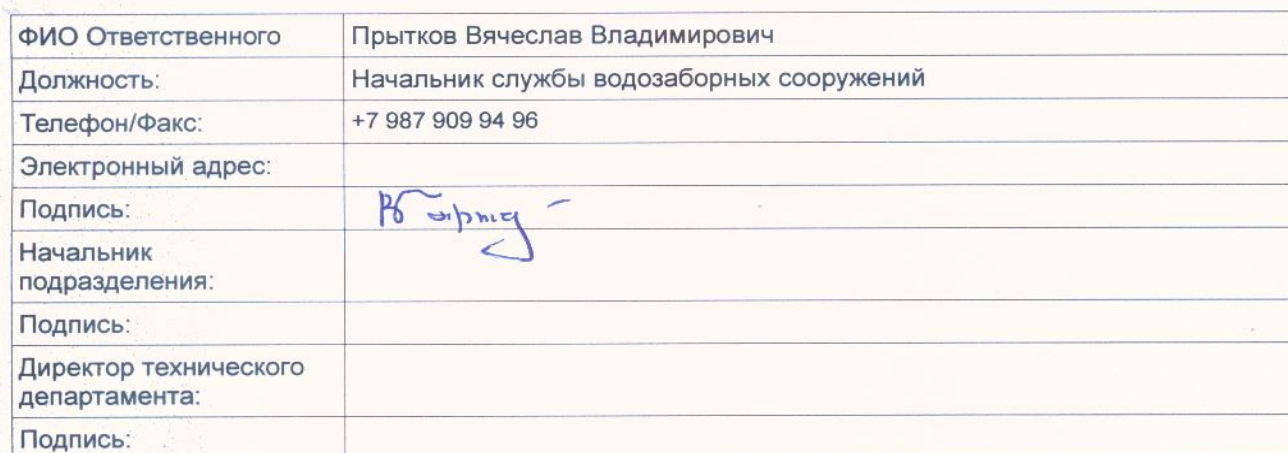 ФИО Ответственного Прытков Вячеслав Владимирович
Должность: Начальник службы водозаборных сооружений
Телефон/Факс: +7 987 909 94 96
Электронный адрес:
Подпись:
Начальник
подразделения:
Подпись:
Директор технического
департамента:
Подпись: